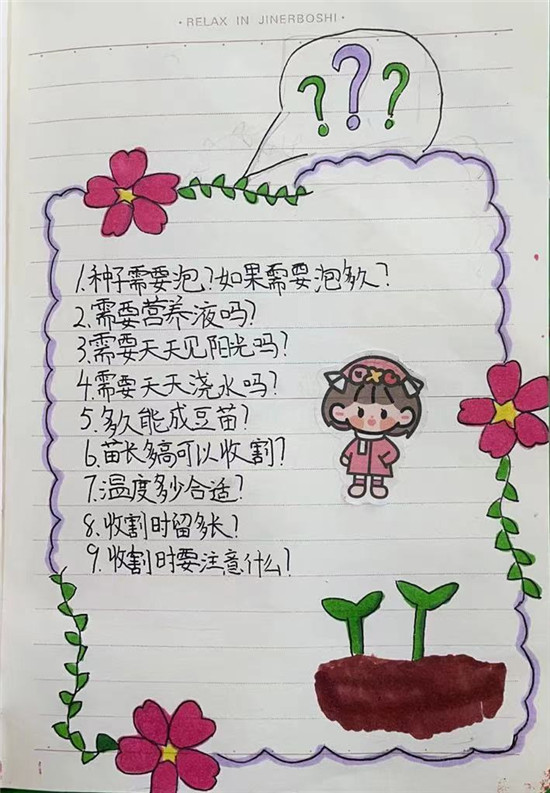 ·RELAX IN JINERBOSHI·
? ? ?
1.种子需要泡?如果需要泡多久?
2.需要营养液吗?
3.需要天天见阳光吗?
4.需要天天浇水吗?
5.多久能成豆苗?
6.苗长多高可以收割?
7.温度多少合适?
8.收割时留多长?
9.收割时要注意什么?